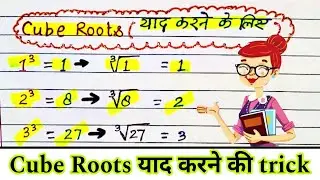 Cube Roots ( याद करने के लिए
1³ = 1 → ∛1 = 1
2³ = 8 → ∛8 = 2
3³ = 27 → ∛27 = 3
Cube Roots याद करने की trick